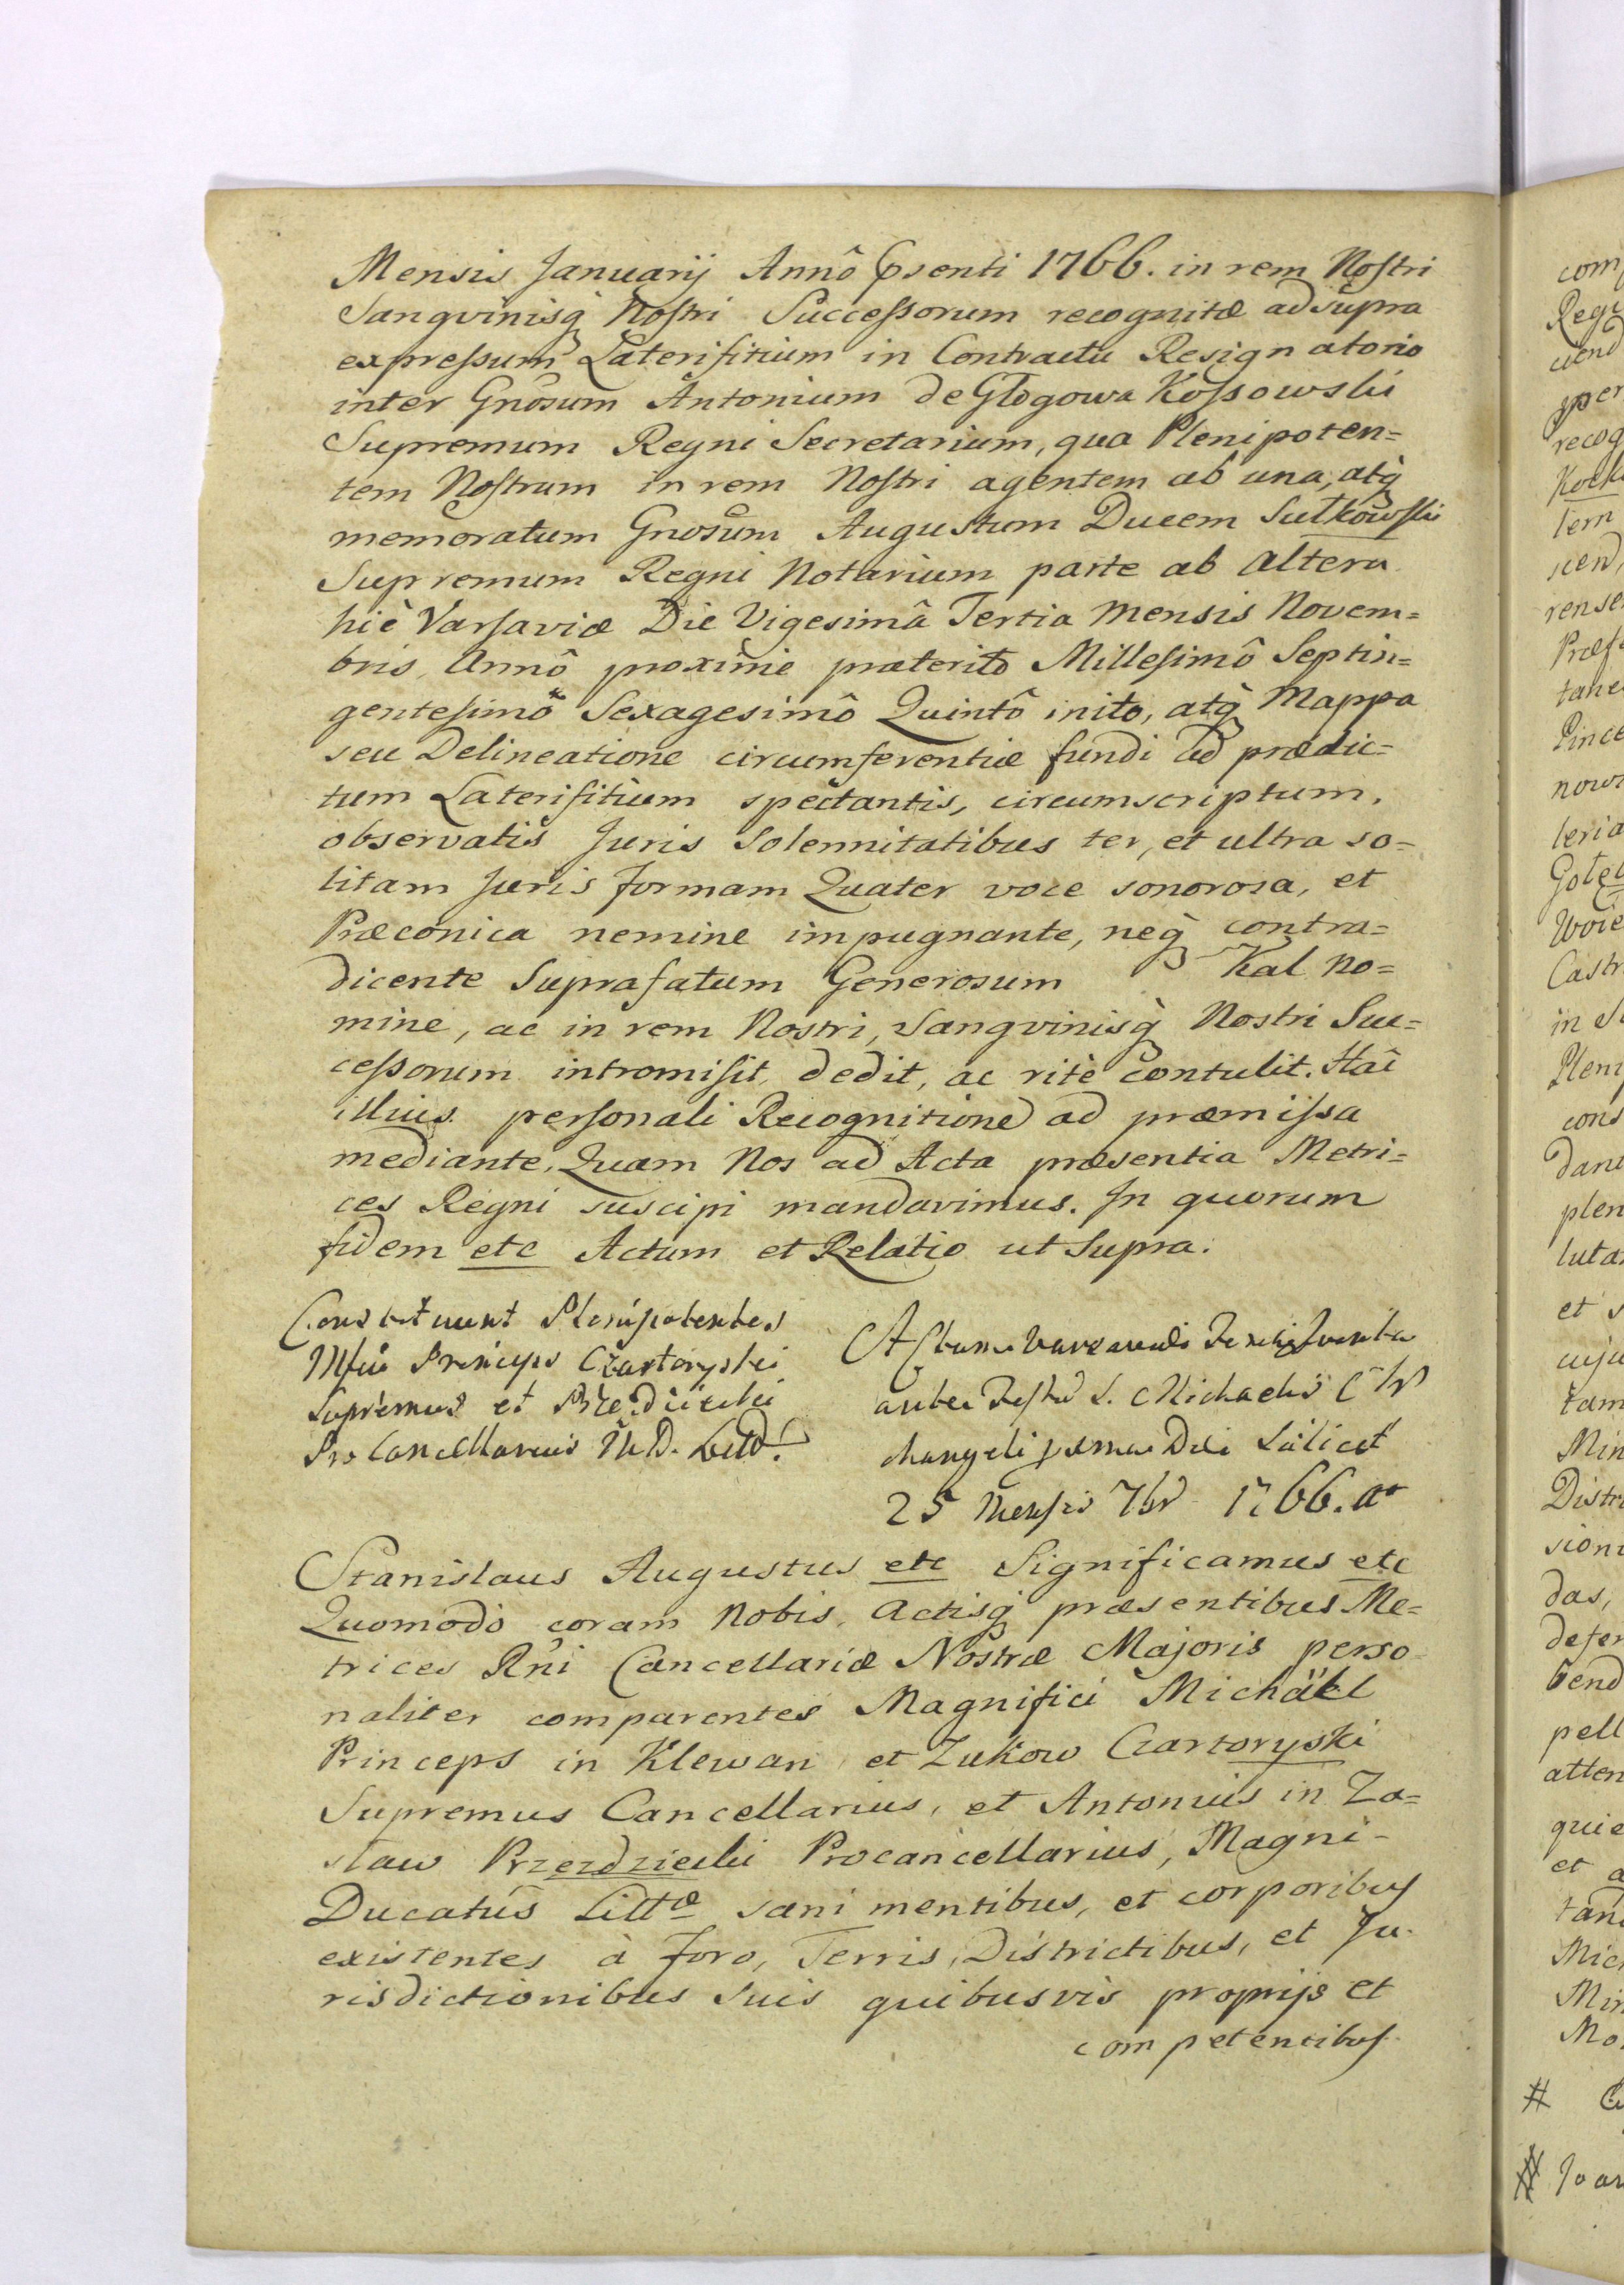 Mensis Januarij Annô psenti 1766. in rem Nostri
Sangvinisq Nostri Successorum recognitæ ad supra
expressum Laterifitium in Contractu Resignatorio
inter Gnosum Antonium de Glogowa Kossowski
Supremum Regni Secretarium, qua Plenipoten=
tem Nostrum in rem Nostri agentem ab una, atq
memoratum Gnosum Augustum Ducem Sułkowski
Supremum Regni Notarium parte ab altera
hic Varsaviæ Die Vigesimâ Tertia Mensis Novem=
bris, Annô proximè præterito Millesimô Septin=
gentesimô Sexagesimô Quintô inito, atq Mappa
seu Delineatione circumferentiæ fundi ad prædic=
tum Laterifitium spectantis, circumscriptum,
observatis Juris Solennitatibus ter, et ultra so=
litam Juris formam Quater voce sonorosa, et
Præconica nemine impugnante, neq contra=
dicente Suprafatum Generosum Kal no=
mine, ac in rem Nostri, Sangvinisq Nostri Suc=
cessorum intromisit, dedit, ac ritè contulit. Hac
illius personali Recognitione ad præmissa
mediante, Quam Nos ad Acta præsentia Metri=
ces Regni suscipi mandavimus. In quorum
fidem etc Actum et Relatio ut Supra.
Constituunt Plenipotentes
Princeps Czartoryski
Supremus et
Pro Cancellarius M. D. Litt.
Actum
ante Festum S. Michaelis
changeli Die Scilicet
25 Mensis 7br 1766. ao
Stanislaus Augustus etc Significamus etc
Quomodo coram Nobis, Actisq præsentibus Me=
trices Rni Cancellariæ Nostræ Majoris perso
naliter comparentes Magnifici Michäel
Princeps in Klewan et Zukow Czartoryski
Supremus Cancellarius, et Antonius in Za=
slaw Przezdziecki Procancellarius, Magni-
Ducatûs Littæ sani mentibus, et corporibus
existentes à Foro, Terris, Districtibus, et Ju-
risdictionibus Suis quibusvis proprijs et
competentibus